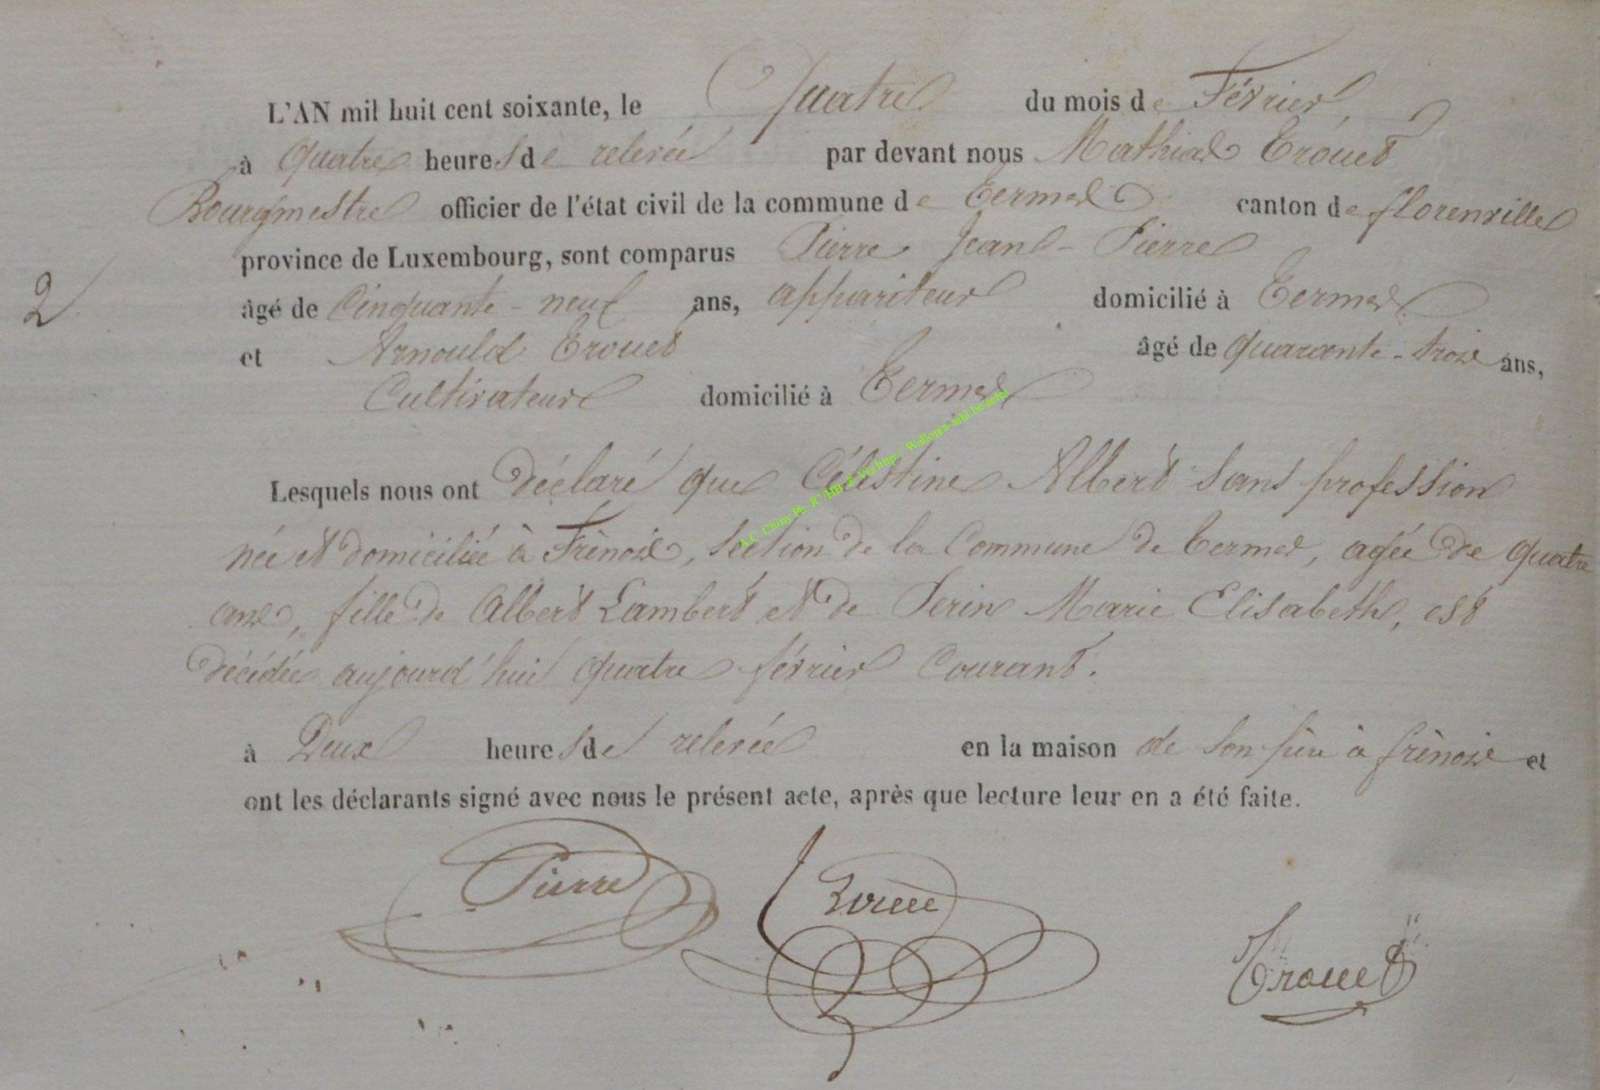 L'AN mil huit cent soixante, le Quatre du mois de Février
à Quatre heures de relevée par devant nous Mathias Trouet
Bourgmestre officier de l'état civil de la commune de Termes canton de florenville
province de Luxembourg, sont comparus Pierre Jean-Pierre
âgé de Cinquante-neuf ans, appariteur domicilié à Termes
2
et Arnould Trouet âgé de quarante-trois ans,
Cultivateur domicilié à Termes
Lesquels nous ont déclaré que Célestine Albert sans profession
née et domiciliée à Frénois, section de la Commune de termes, agée de quatre
ans, fille de Albert Lambert et de Perin Marie Elisabeth, est
décédée aujourd'hui quatre février Courant.
à Deux heures de relevée en la maison de son père à frénois et
ont les déclarants signé avec nous le présent acte, après que lecture leur en a été faite.
Pierre Trouet
Trouet